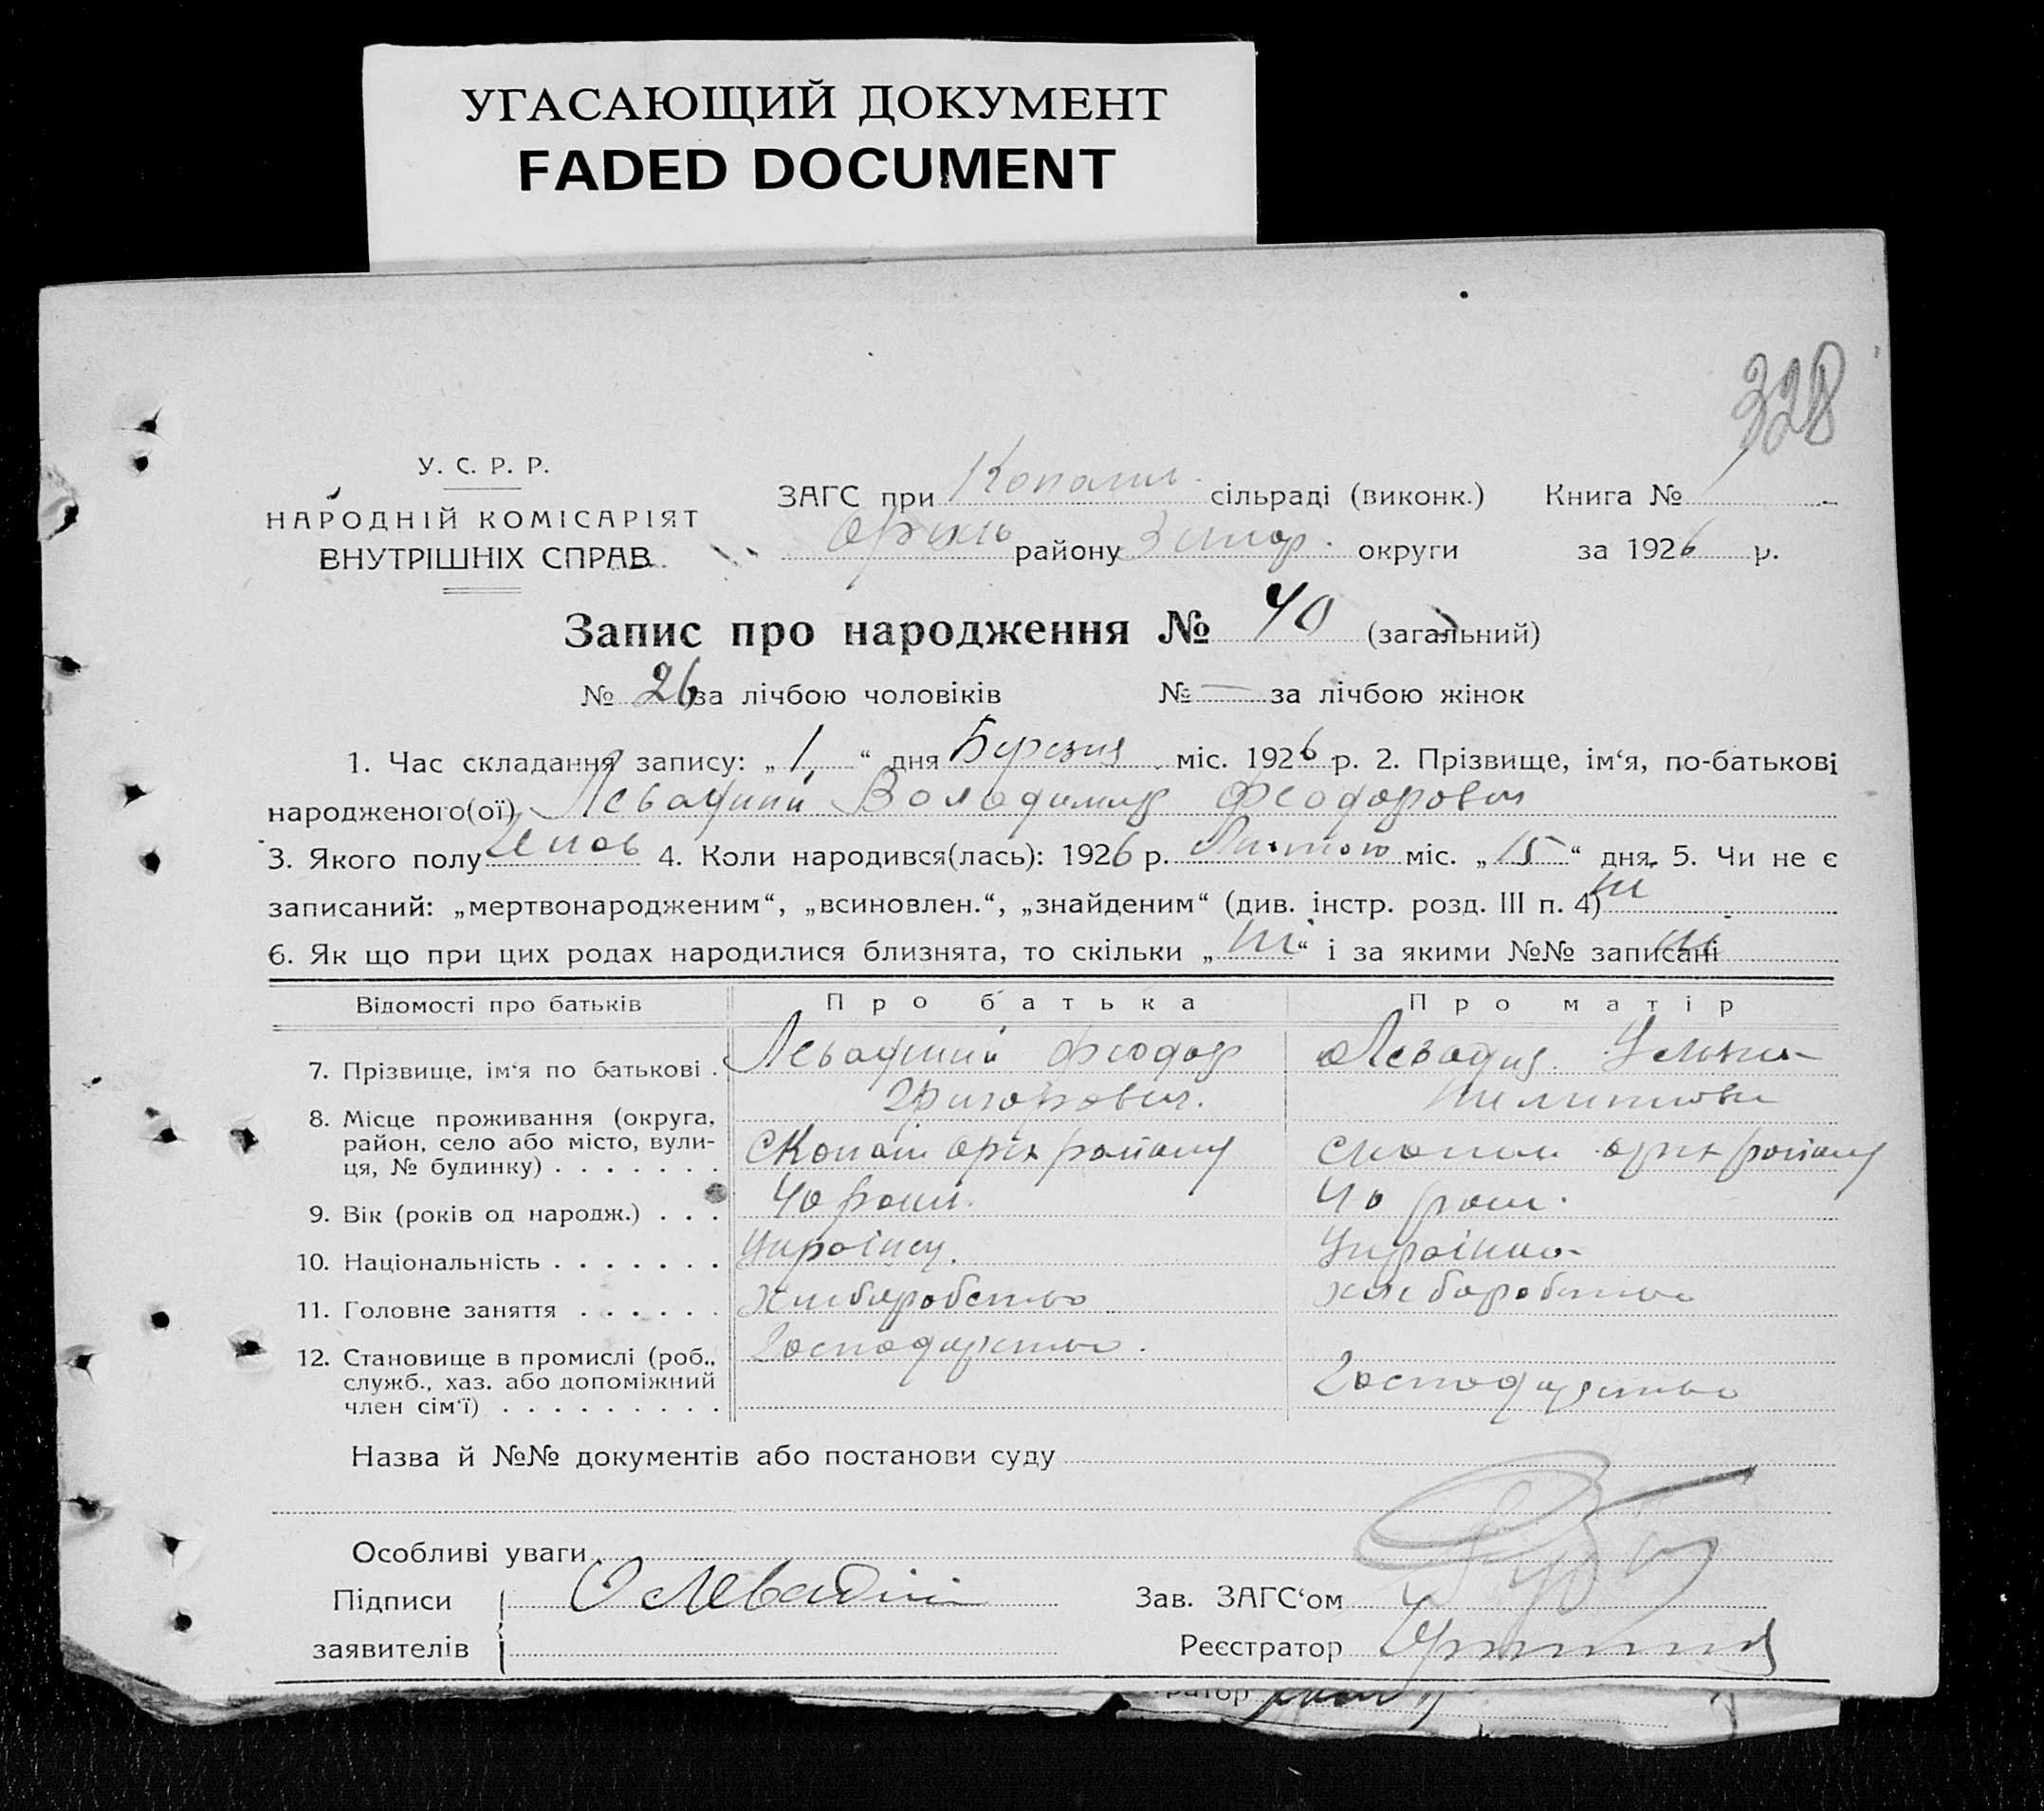 УГАСАЮЩИЙ ДОКУМЕНТ
FADED DOCUMENT
328
У. С. Р. Р.
НАРОДНІЙ КОМІСАРІЯТ
ВНУТРІШНІХ СПРАВ
ЗАГС при Копань. сільраді (виконк.) Книга №
району Запор. округи за 1926 р.
Запис про народження № 40 (загальний)
№ 26 за лічбою чоловіків № — за лічбою жінок
1. Час складання запису: „ 1 “ дня Березня міс. 1926 р. 2. Прізвище, ім‘я, по-батькові
народженого(ої) Левадний Володимир Феодорович
3. Якого полу 4. Коли народився(лась): 1926 р. Лютого міс. „ 15 “ дня. 5. Чи не є
записаний: „мертвонародженим“, „всиновлен.“, „знайденим“ (див. інстр. розд. III п. 4) ні
6. Як що при цих родах народилися близнята, то скільки „ ні “ і за якими №№ записані ні
Відомості про батьків Про батька Про матір
7. Прізвище, ім‘я по батькові . Левадний Феодор Левадня
Григорович.
8. Місце проживання (округа,
район, село або місто, вули-
ця, № будинку) . . . . . . . с Копані оріх району с Копани оріх району
9. Вік (років од народж.) . . . 40 рокі. 40 рокі.
10. Національність . . . . . . . Українец. Українка
11. Головне заняття . . . . . . хлібаробство хлібаробство
12. Становище в промислі (роб.,
служб., хаз. або допоміжний
член сім‘ї) . . . . . . . . . Господарство. Господарство
Назва й №№ документів або постанови суду
Особливі уваги
Підписи Левадній Зав. ЗАГС‘ом
заявителів Реєстратор
ратор